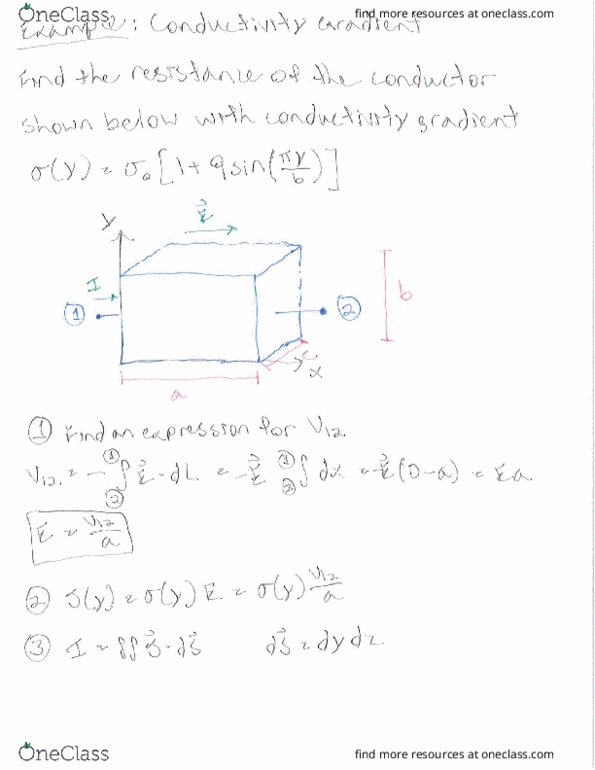 OneClass
find more resources at oneclass.com
Example: Conductivity Gradient
Find the resistance of the conductor
shown below with conductivity gradient
σ(y) = σ₀[1+9sin(πy/b)]
y
E⃗
I
①
②
b
c
x
a
① Find an expression for V₁₂
V₁₂ = -∫②① E⃗·dL = -E⃗ ②∫① dx = -E⃗(0-a) = Ea
E = V₁₂/a
② J(y) = σ(y)E = σ(y) V₁₂/a
③ I = ∫∫ J⃗·ds⃗ ds⃗ = dydz
OneClass
find more resources at oneclass.com